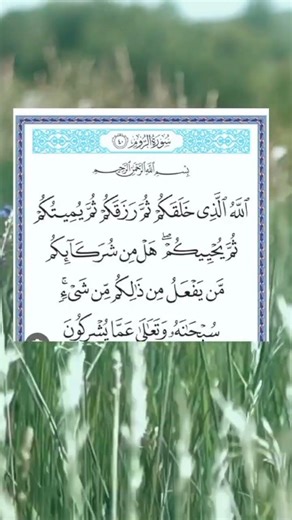 سُورَةُ الرُّومِ ٤٠
بِسْمِ اللَّهِ الرَّحْمَٰنِ الرَّحِيمِ
ٱللَّهُ ٱلَّذِى خَلَقَكُمْ ثُمَّ رَزَقَكُمْ ثُمَّ يُمِيتُكُمْ
ثُمَّ يُحْيِيكُمْ ۖ هَلْ مِن شُرَكَآئِكُم
مَّن يَفْعَلُ مِن ذَٰلِكُم مِّن شَىْءٍ ۚ
سُبْحَـٰنَهُۥ وَتَعَـٰلَىٰ عَمَّا يُشْرِكُونَ